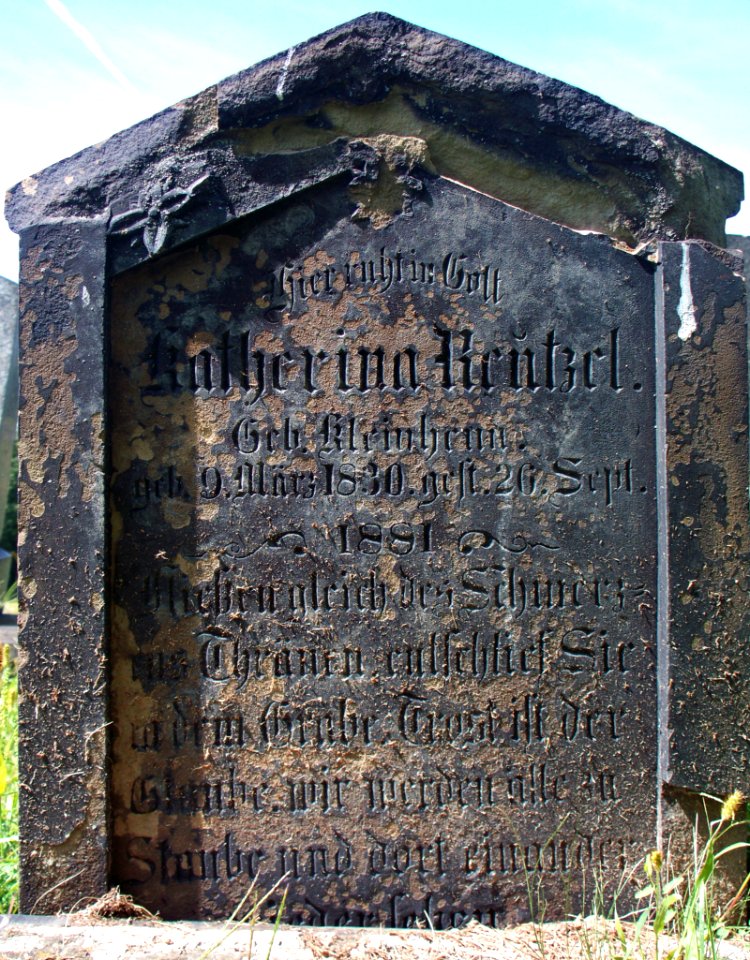 Hier ruht in Gott
Katherina Reutzel.
Geb. Kleinhenn.
geb. 9. März 1830. gest. 26. Sept.
1881
fließen gleich des Schmerz-
ens Thränen, entschlief Sie
in dem Grabe. Trost ist der
Glaube, wir werden alle zu
Staube und dort einander
wieder sehen